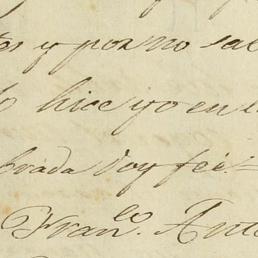 y por no sa
hice yo en
brada doy fee.=
Fran.co Anto